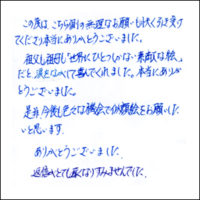 この度は、こちら側の無理なお願いも快く引き受け
てくださり本当にありがとうございました。
祖父も祖母も"世界にひとつしかない素敵な絵"
だと涙をながして喜んでくれました。本当にありが
とうございました。
是非今後も色々な機会で似顔絵をお願いした
いと思います。
ありがとうございました。
返信がとても遅くなりすみませんでした。